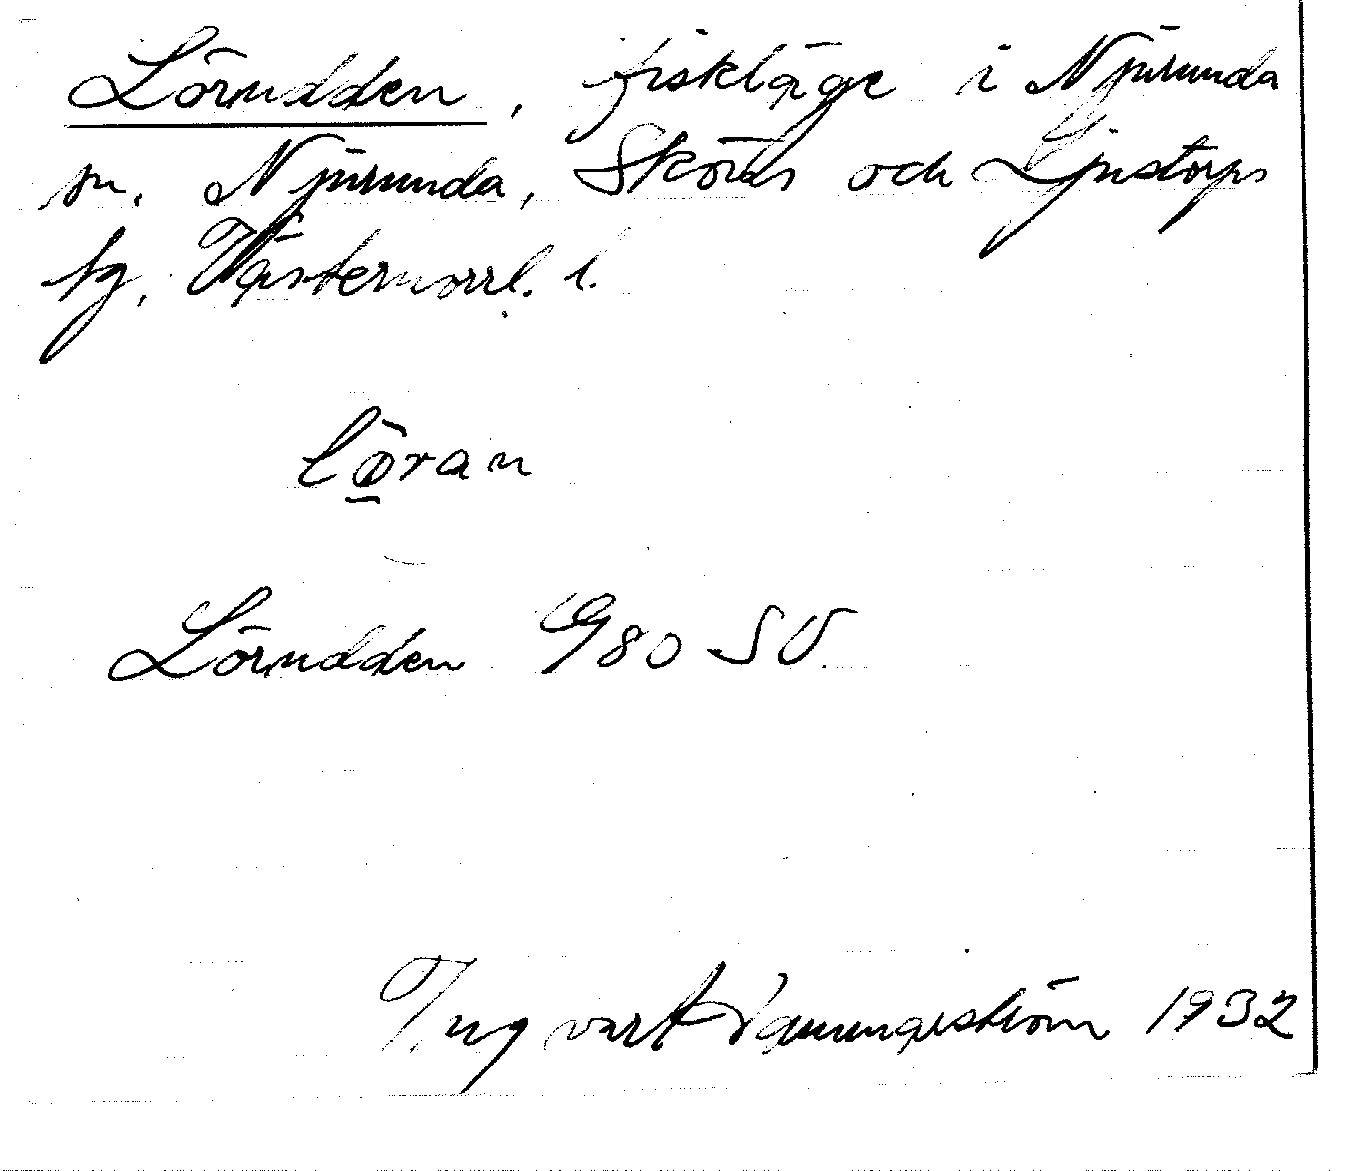 Lörudden, fiskläge i Njurunda
sn. Njurunda, Sköns och Ljustorps
tg, Västernorrl. l.
löran
Lörudden G80 SV
Ingvart 1932